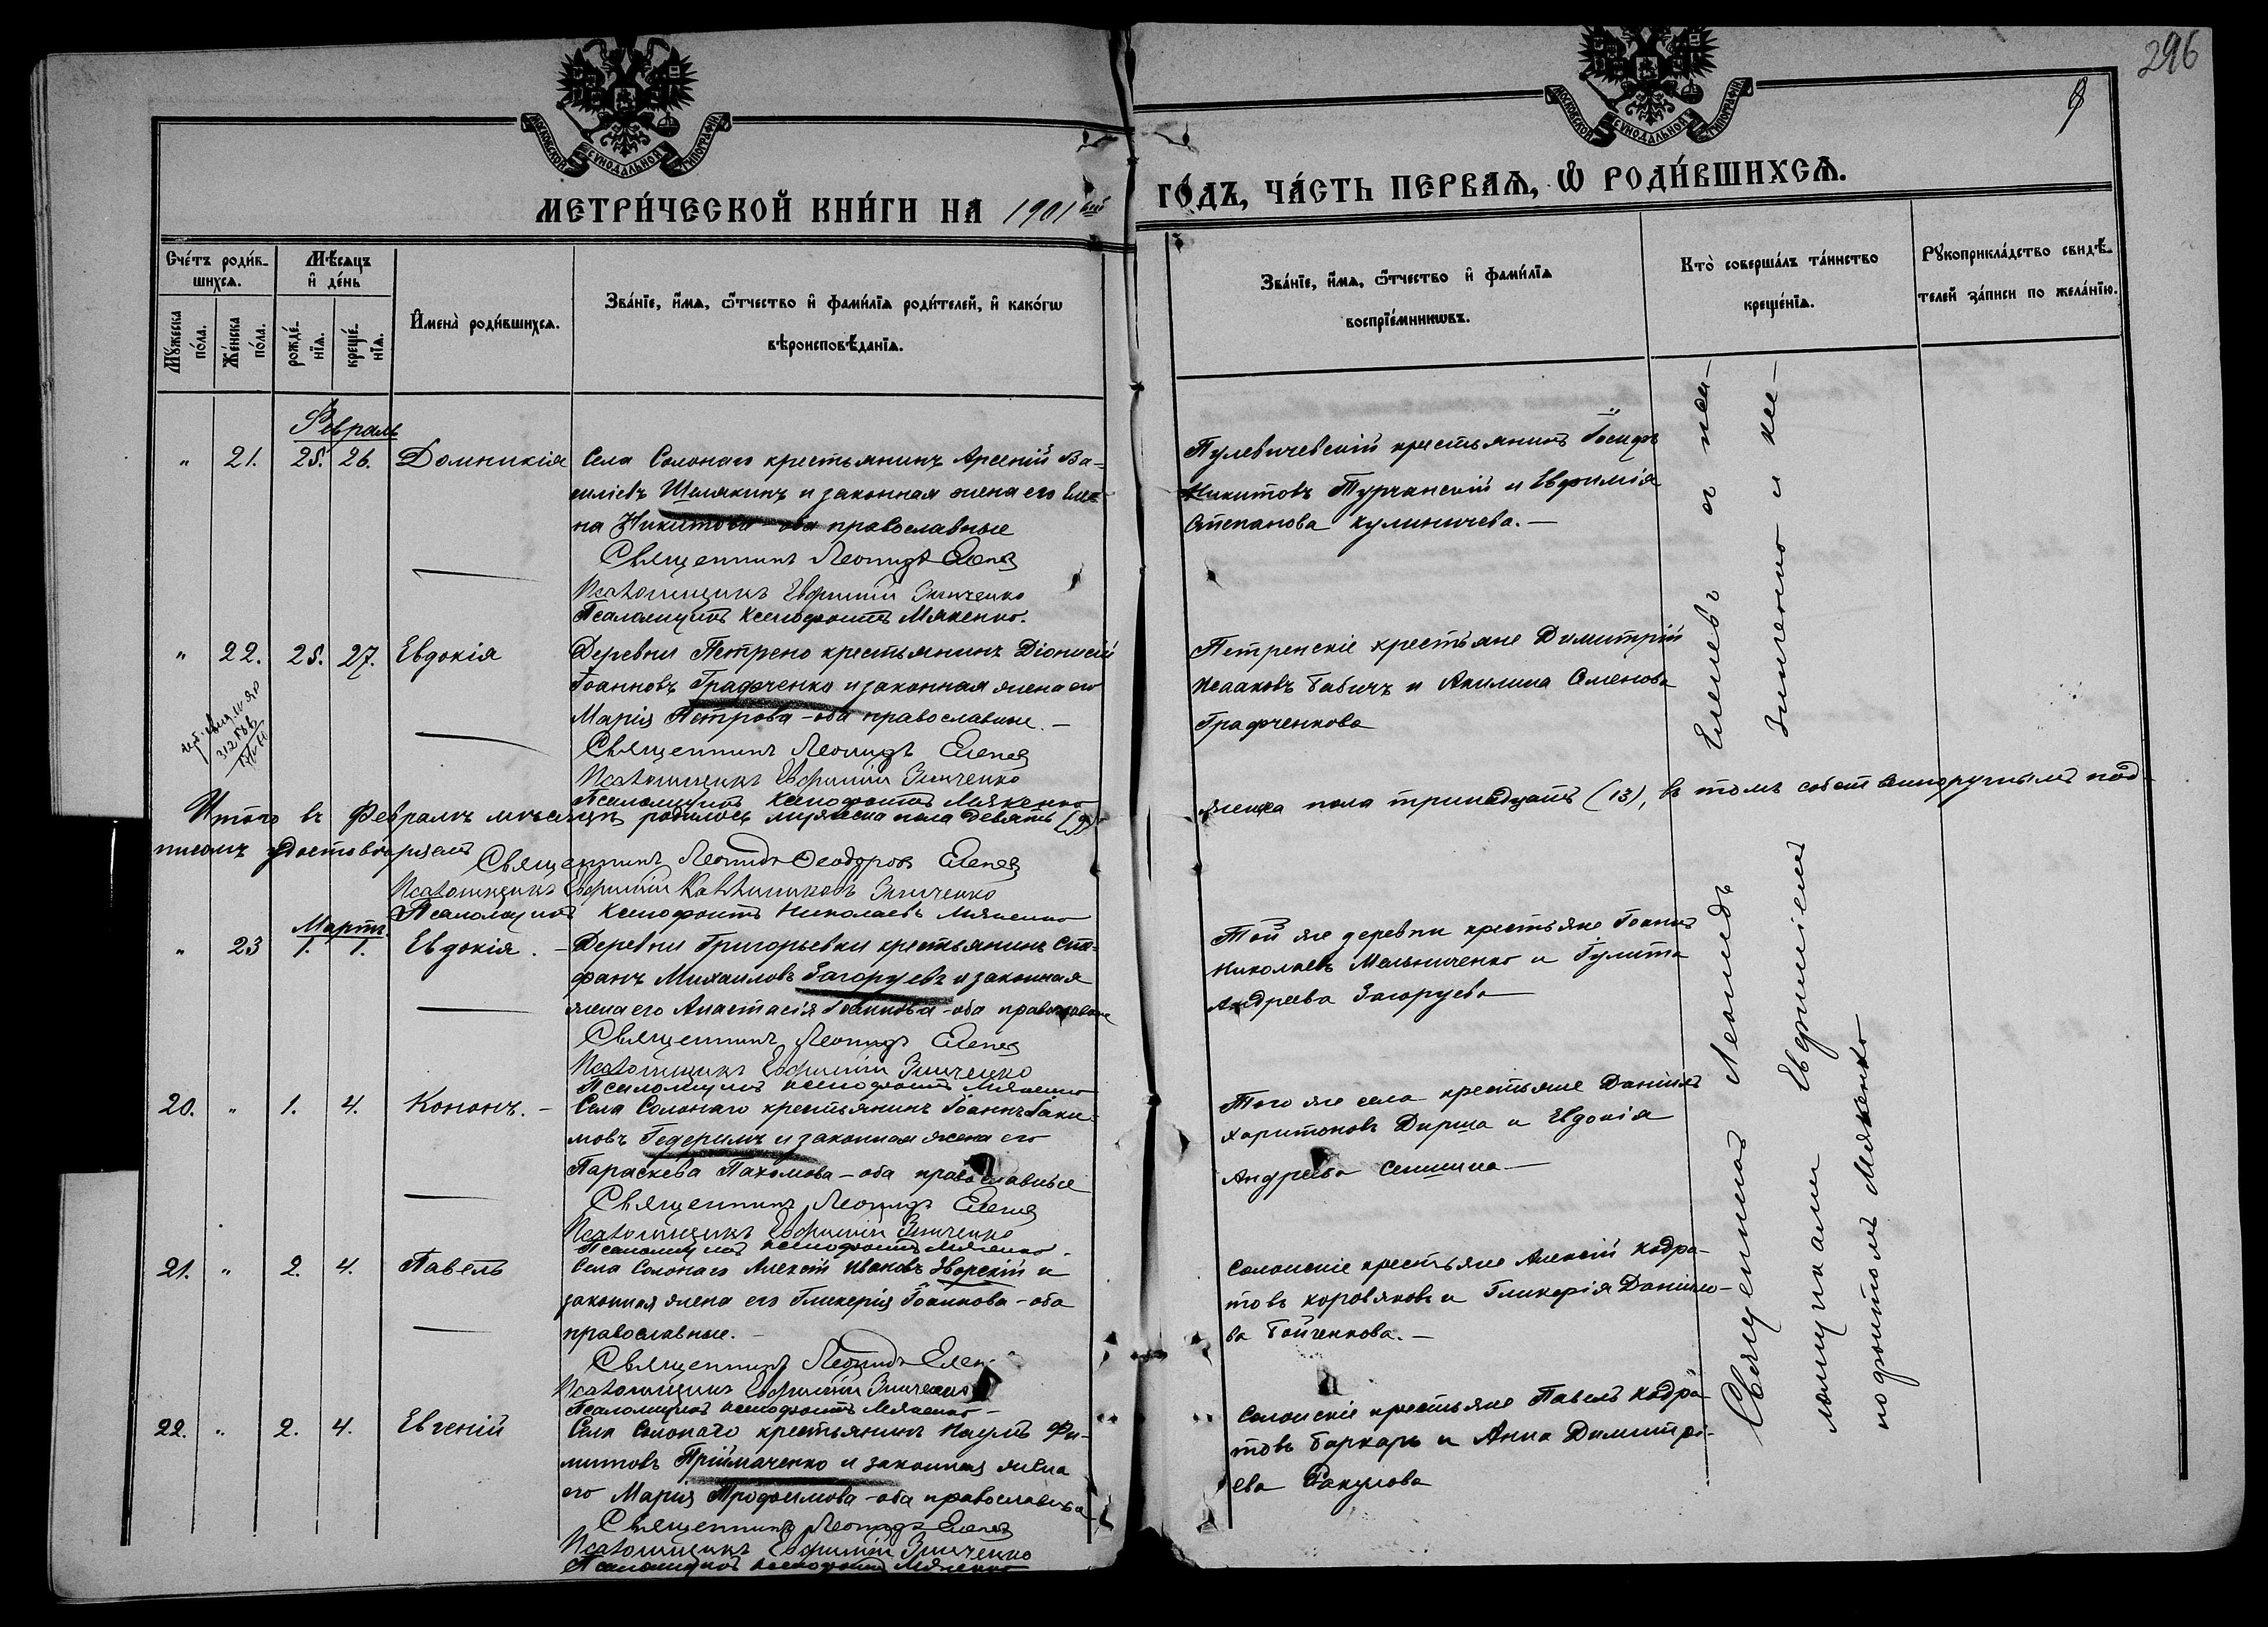 296
9
МОСКОВСКОЙ СѴНОДАЛЬНОЙ ТИПОГРАФІИ
МОСКОВСКОЙ СѴНОДАЛЬНОЙ ТИПОГРАФІИ
МЕТРИ́ЧЕСКОЙ КНИ́ГИ НА 1901 ый
ГО́ДЪ, ЧА́СТЬ ПЕРВАѦ, Ѡ҆ РОДИ́ВШИХСѦ.
Сче́тъ роди́в-
шихсѧ.
Мѣ́сѧцъ
и҆ де́нь
Мꙋ́жеска
по́ла.
Же́нска
по́ла.
рожде́-
нїѧ.
креще́-
нїѧ.
И҆мена̀ роди́вшихсѧ.
Зва́нїе, и҆́мѧ, ѻ҆́тчество и҆ фами́лїѧ роди́телей, и҆ како́гѡ
вѣроисповѣ́данїѧ.
Зва́нїе, и҆́мѧ, ѻ҆́тчество и҆ фами́лїѧ
воспрїе́мникѡвъ.
Кто̀ соверша́лъ та́инство
креще́нїѧ.
Рꙋкоприкла́дство свидѣ́-
телей за́писи по жела́нїю.
Февраль
" 21. 25. 26. Домникія Села Солонаго крестьянинъ Арсеній Ва-
силіевъ Шелякинъ и законная жена его Еле-
на Никитова - оба православные
Священникъ Леонидъ Еленевъ
Псаломщикъ Евфимій Зинченко
Псаломщикъ Ксенофонтъ Мякенко.
Пулевичевскій крестьянинъ Іосифъ
Никитовъ Турчанскій и Евфимія
Степанова Кулиничева. —
" 22. 25. 27. Евдокія Деревни Петрено крестьянинъ Діонисій
Іоанновъ Графченко и законная жена его
Марія Петрова - оба православные. —
Священникъ Леонидъ Еленевъ
Псаломщикъ Евфимій Зинченко
Псаломщикъ Ксенофонтъ Мякенко
Петренскіе крестьяне Димитрій
Исааковъ Бабичъ и Акилина Семенова
Графченкова
Итого въ Февралѣ мѣсяцѣ родилось мужеска пола девять (9),
женска пола тринадцать (13), въ томъ собственноручнымъ под-
писомъ удостовѣряемъ
Священникъ Леонидъ Ѳеодоровъ Еленевъ
Псаломщикъ Евфимій Зинченко
Псаломщикъ Ксенофонтъ Николаевъ Мякенко
Мартъ.
" 23 1. 1. Евдокія. — Деревни Григорьевки крестьянинъ Сте-
фанъ Михаиловъ Загоруевъ и законная
жена его Анастасія Іоаннова - оба православные
Священникъ Леонидъ Еленевъ
Псаломщикъ Евфимій Зинченко
Псаломщикъ Ксенофонтъ Мякенко
Той же деревни крестьяне Іоаннъ
Николаевъ Мельниченко и Іулита
Андреева Загоруева —
20. " 1. 4. Кононъ. — Села Солонаго крестьянинъ Іоаннъ Іаки-
мовъ Гедеримъ и законная жена его
Параскева Пахомова - оба православные
Священникъ Леонидъ Еленевъ
Псаломщикъ Евфимій Зинченко
Псаломщикъ Ксенофонтъ Мякенко.
Того же села крестьяне Даніилъ
Харитоновъ Дирша и Евдокія
Андреева —
21. " 2. 4. Павелъ Села Солонаго Алексій Иваковъ Зворскій и
законная жена его Гликерія Іоаннова - оба
православные. —
Священникъ Леонидъ Елен
Псаломщикъ Евфимій Зинченко
Псаломщикъ Ксенофонтъ Мякенко —
Солонскіе крестьяне Алексій Кодра-
товъ Коровяковъ и Гликерія Даніило-
ва Бойченкова. —
22. " 2. 4. Евгеній Села Солонаго крестьянинъ Наумъ Фи-
липовъ Пріймаченко и законная жена
его Марія Трофимова - оба православные
Священникъ Леонидъ Еленевъ
Псаломщикъ Евфимій Зинченко
Псаломщикъ Ксенофонтъ Мякенко
Солонскіе крестьяне Павелъ Кодра-
товъ Баркарь и Анна Димитрі-
ева Ракулова
Священникъ Леонидъ Еленевъ и пса-
ломщиками Евфиміемъ Зинченко и Ксе-
нофонтомъ Мякенко